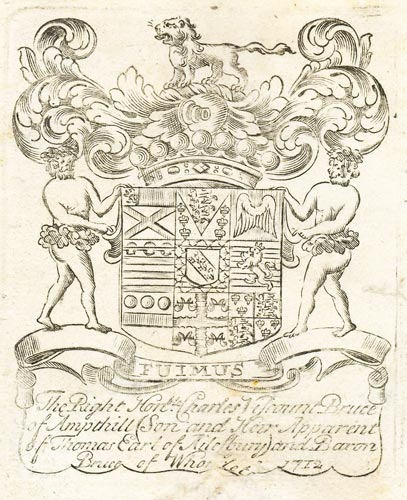 FUIMUS
The Right Honble. Charles Viscount Bruce
of Ampthill (Son and Heir Apparent
of Thomas Earl of Ailesbury) and Baron
Bruce of Whorleton 1712